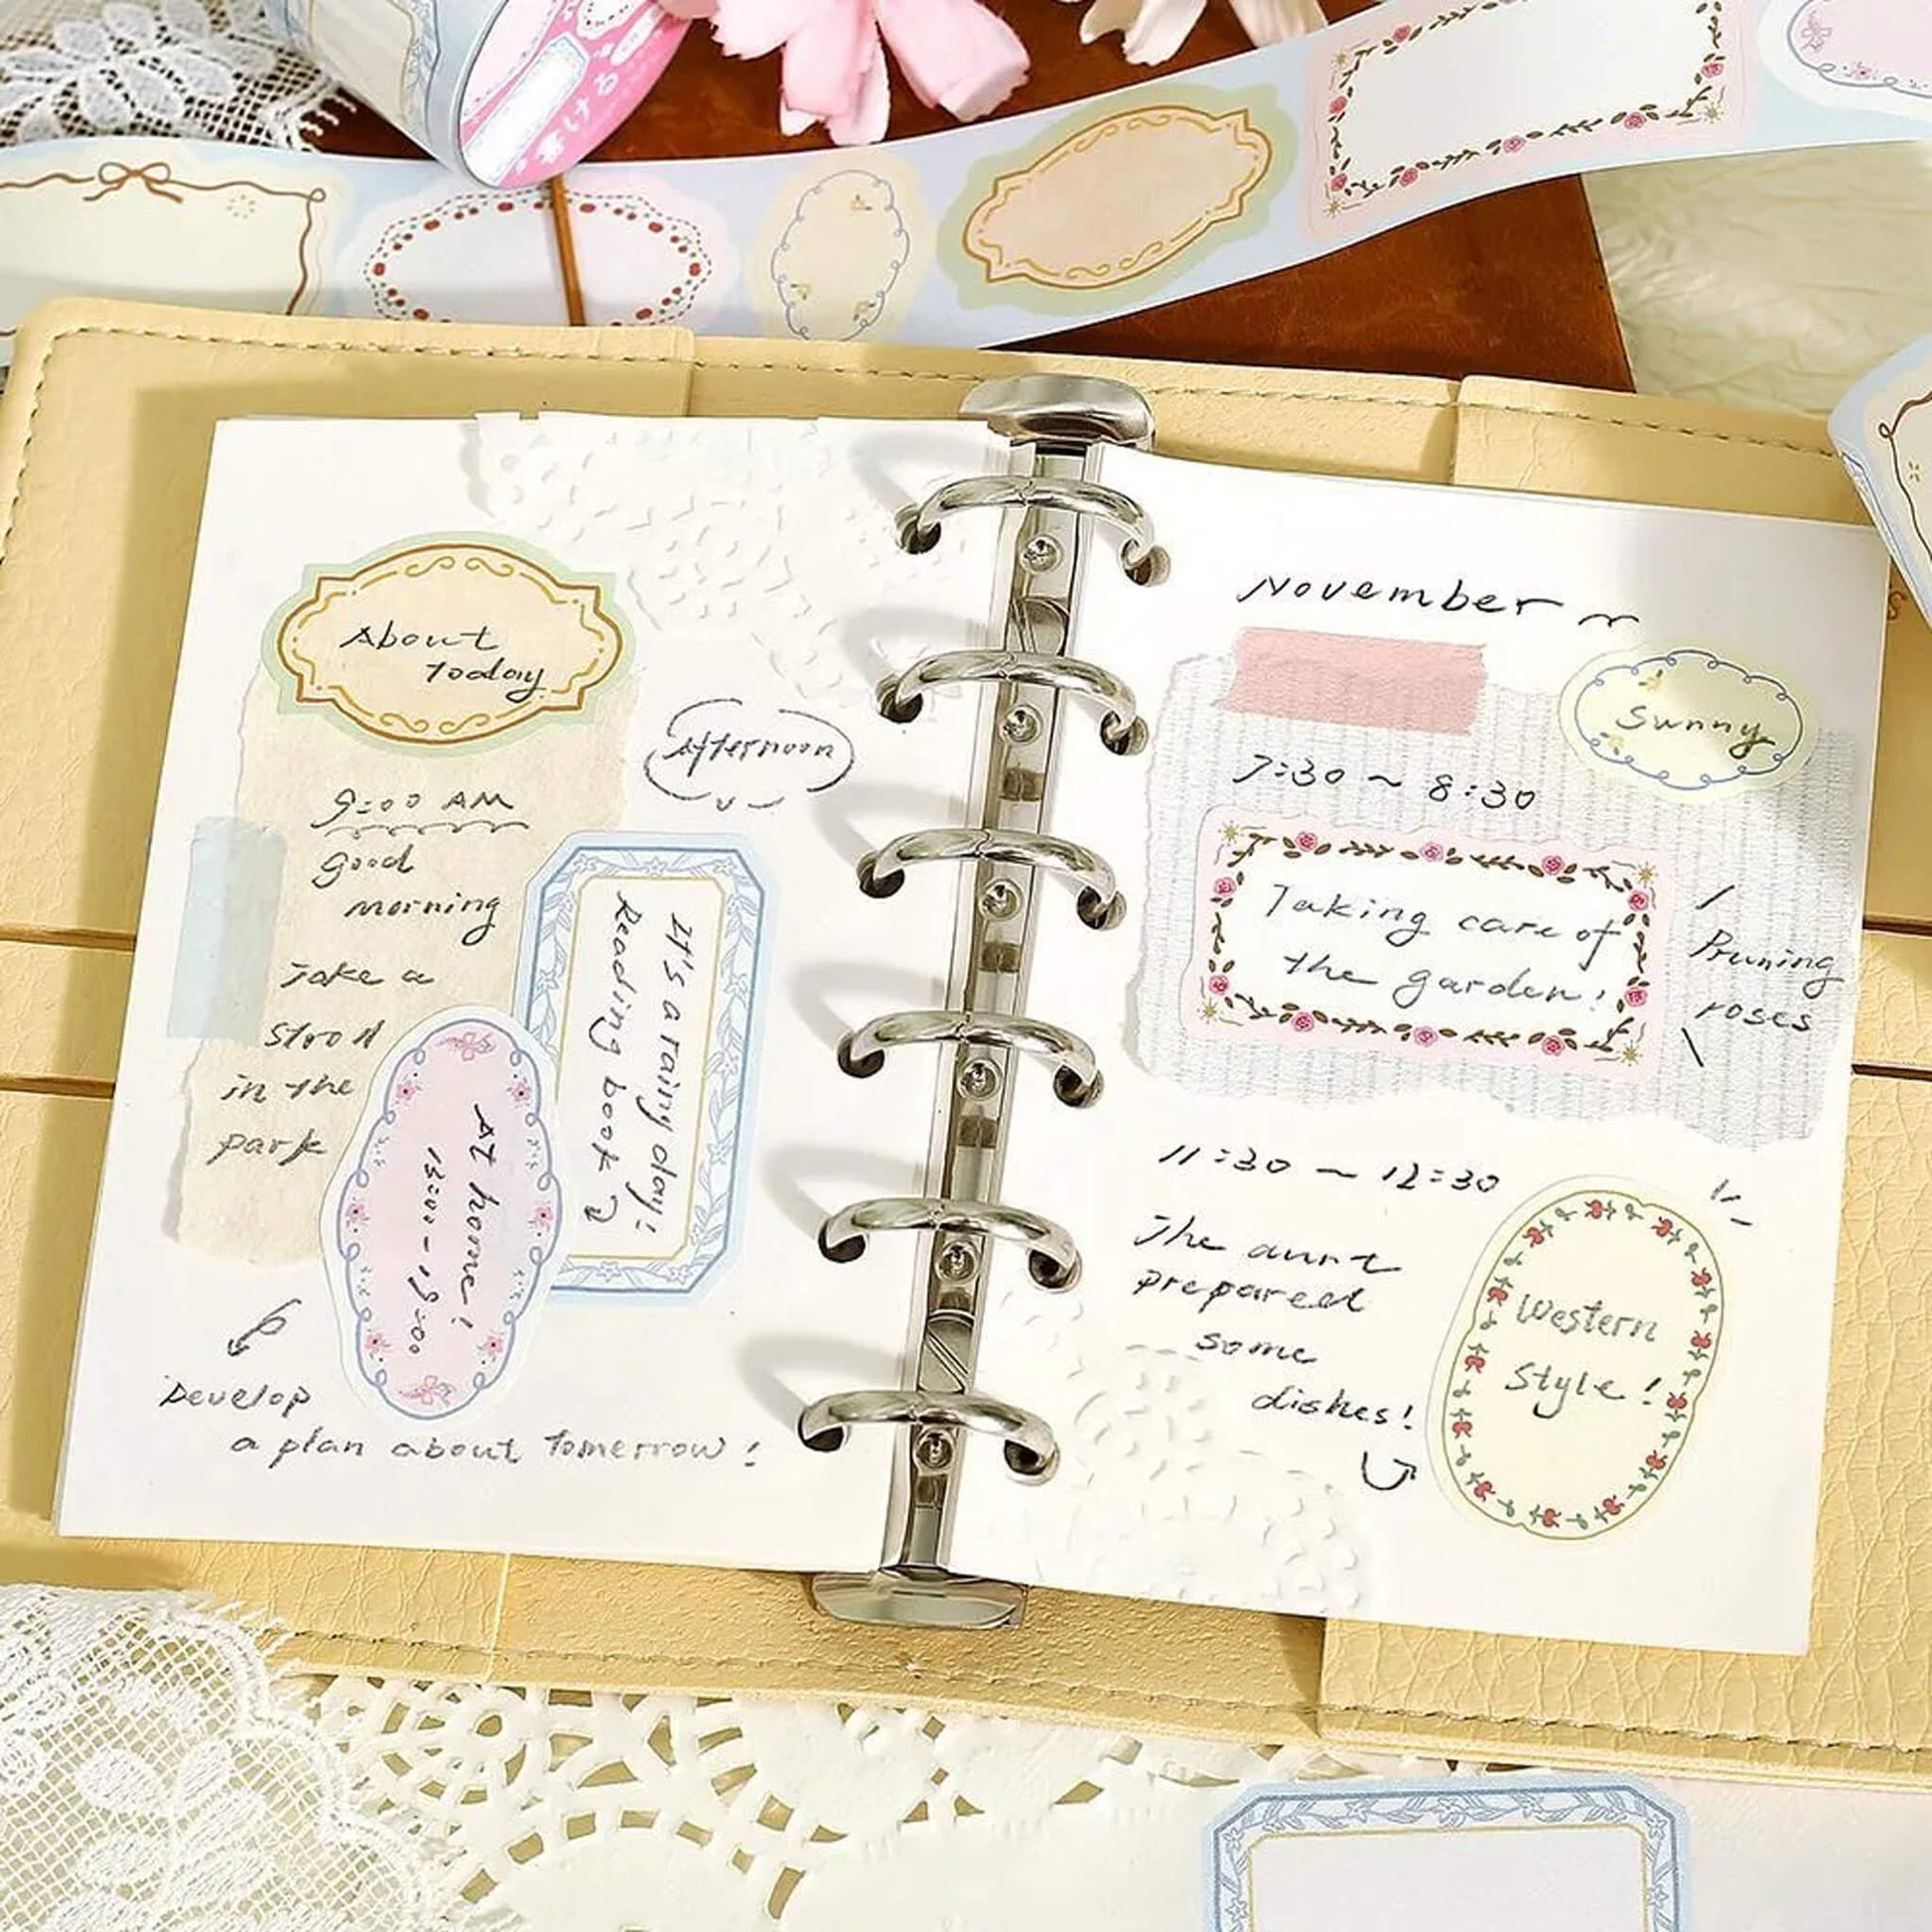 書ける
About
Today
9:00 AM
good
morning
Take a
stroll
in the
park
Afternoon
It's a rainy day!
Reading book
At home!
13:00-19:00
Develop
a plan about Tomorrow!
November
Sunny
7:30 ~ 8:30
Taking care of
the garden!
Pruning
roses
11:30 ~ 12:30
The aunt
prepared
some
dishes!
Western
Style!